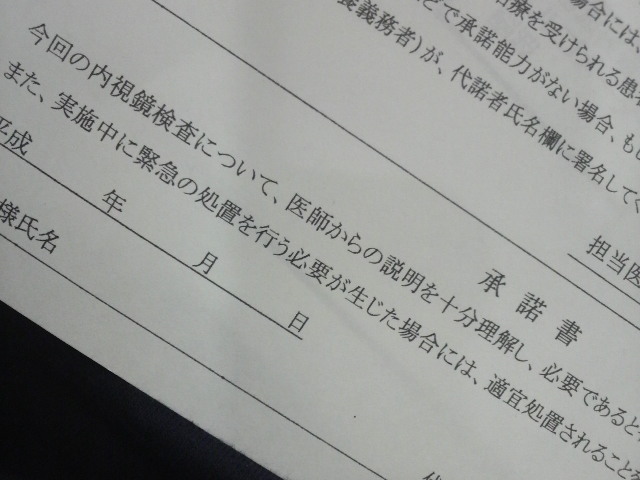 場合には、
治療を受けられる患
どで承諾能力がない場合、もし
養義務者)が、代諾者氏名欄に署名してく
担当医
承諾書
今回の内視鏡検査について、医師からの説明を十分理解し、必要であると
また、実施中に緊急の処置を行う必要が生じた場合には、適宜処置されることを
平成 年 月 日
様氏名